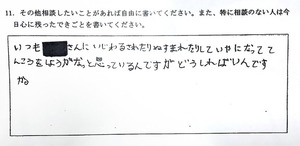 11. その他相談したいことがあれば自由に書いてください。また、特に相談のない人は今日
心に残ったできごとを書いてください。
いつも さんにいじわるされたりぬすまれたりしていやになってて
んこうをしようがなっと思っているんですがどうしればいんです
か。